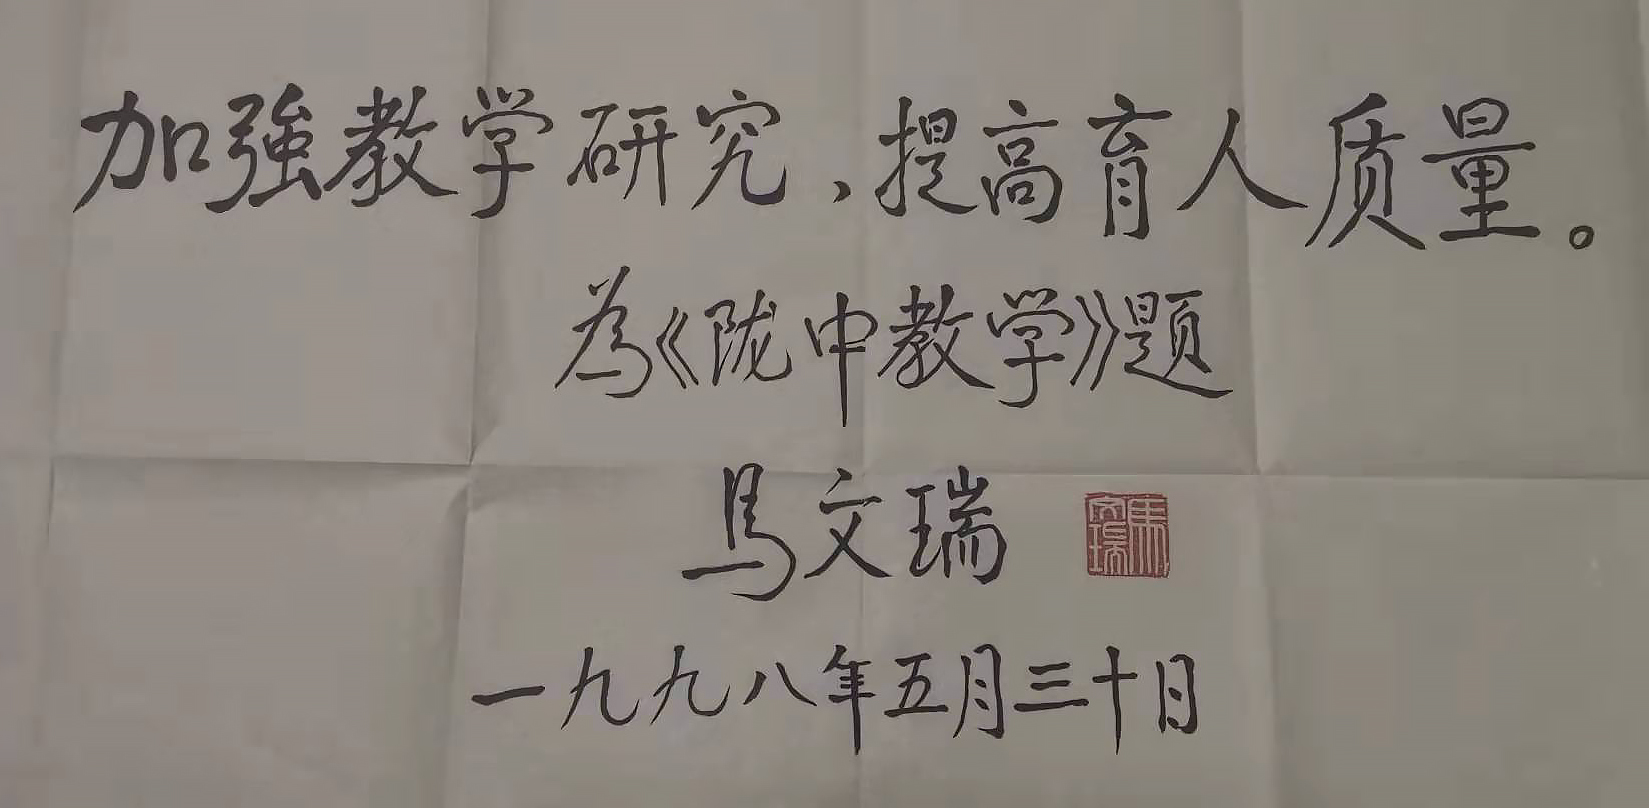 加強教学研究，提高育人质量。
为《陇中教学》题
马文瑞
馬文瑞
一九九八年五月三十日